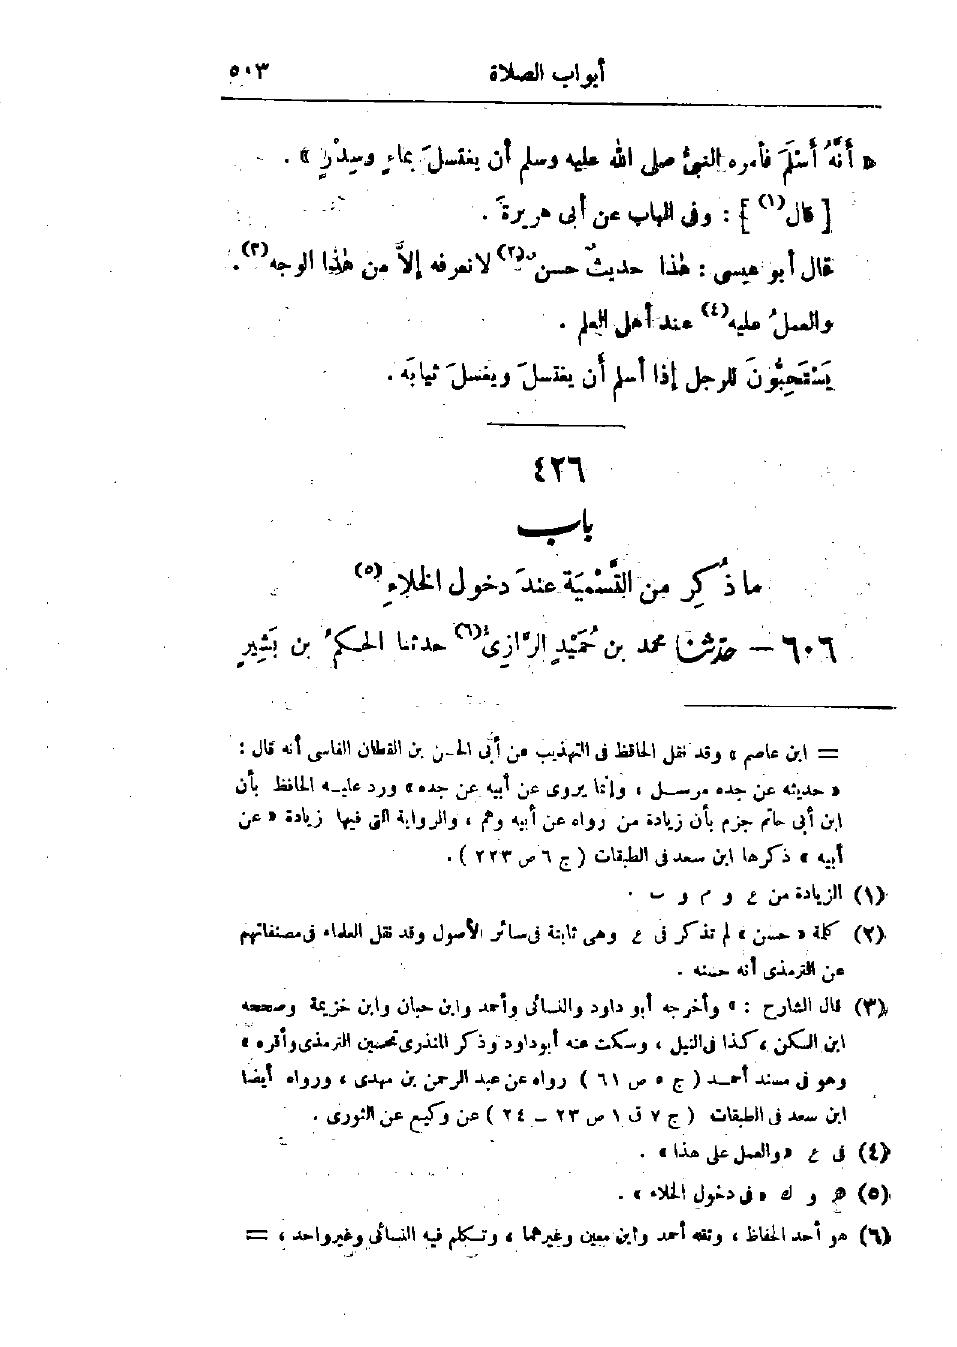 أبواب الصلاة ٥٠٣
« أَنَّهُ أَسْلَمَ فأمره النبيُّ صلى الله عليه وسلم أن يغتسلَ بماءٍ وسِدْرٍ » .
[ قال (١) ] : وفى الباب عن أبى هريرةَ .
قال أبو عيسى : هٰذا حديثٌ حسنٌ (٢) لا نعرفه إلاَّ من هٰذا الوجه (٣) .
والعملُ عليه (٤) عند أهل العلم .
يَسْتَحِبُّونَ للرجل إذا أسلم أن يغتسلَ ويغسلَ ثيابَه .
٤٢٦
باب
ما ذُكِرَ من التَّسْمِيَة عندَ دخول الخلاءِ (٥)
٦٠٦ – حدّثنا محمد بن حُمَيْدٍ الرَّازِىُّ (٦) حدثنا الحكمُ بن بَشِيرِ
= ابن عاصم » وقد نقل الحافظ فى التهذيب عن أبى الحسن بن القطان الفاسى أنه قال :
« حديثه عن جده مرسل ، وإنما يروى عن أبيه عن جده » ورد عليه الحافظ بأن
ابن أبى حاتم جزم بأن زيادة من رواه عن أبيه وهم ، والرواية التى فيها زيادة « عن
أبيه » ذكرها ابن سعد فى الطبقات ( ج ٦ ص ٢٢٣ ) .
(١) الزيادة من ع و م و ب .
(٢) كلمة « حسن » لم تذكر فى ع وهى ثابتة فى سائر الأصول وقد نقل العلماء فى مصنفاتهم
عن الترمذى أنه حسنه .
(٣) قال الشارح : « وأخرجه أبو داود والنسائى وأحمد وابن حبان وابن خزيمة وصححه
ابن السكن ، كذا فى النيل ، وسكت عنه أبو داود وذكر المنذرى تحسين الترمذى وأقره »
وهو فى مسند أحمد ( ج ٥ ص ٦١ ) رواه عن عبد الرحمن بن مهدى ، ورواه أيضا
ابن سعد فى الطبقات ( ج ٧ ق ١ ص ٢٣ – ٢٤ ) عن وكيع عن الثورى .
(٤) فى ع « والعمل على هذا » .
(٥) ه و ك « فى دخول الخلاء » .
(٦) هو أحد الحفاظ ، وثقه أحمد وابن معين وغيرهما ، وتكلم فيه النسائى وغير واحد ، =